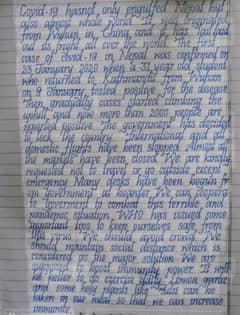 Covid-19 hasnot only engulfed Nepal but
also almost whole World. It was originated
from Wuhan, in China, and it has laid
out its fright all over the world. The first
case of covid-19 in Nepal was confirmed on
23 January 2020 when a 31 year old student
who returned to Kathmandu from Wuhan
on 9 January tested positive for the disease
then gradually cases started climbing the
uphill and now more than 2000 people are
reported positive. The government has decided
to lock the country. International and all
domestic flights have been stopped. Almost all
the markets have been closed. We are kindly
requested not to travel or go outside except
emergency. Many desks have been
government at boarder. We can support
to Government to combat this terrible and
pandemic situation. WHO has issued some
important tips to keep ourselves safe from
this virus. We should avoid crowds. We
should maintain social distance which is
considered as the major solution. We are
supposed to boost immunity power. It will
be better to do exercise daily. Lemon
and some holy plants like can be
taken in our meal so that we can increase
immunity.